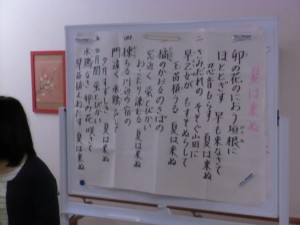 夏は来ぬ
卯の花のにおう垣根に
ほととぎす 早も来なきて
忍音もらす 夏は来ぬ
さみだれの そそぐ山田に
早乙女が もすそぬらして
玉苗植うる 夏は来ぬ
橘のかおるのきばの
窓近く 蛍とびかい
おこたり諌むる 夏は来ぬ
楝ちる 川辺の宿の
門遠く 水鶏声して
夕月すずしき 夏は来ぬ
五月闇 蛍飛びかい
水鶏なき 卯の花咲きて
早苗植えわたす 夏は来ぬ